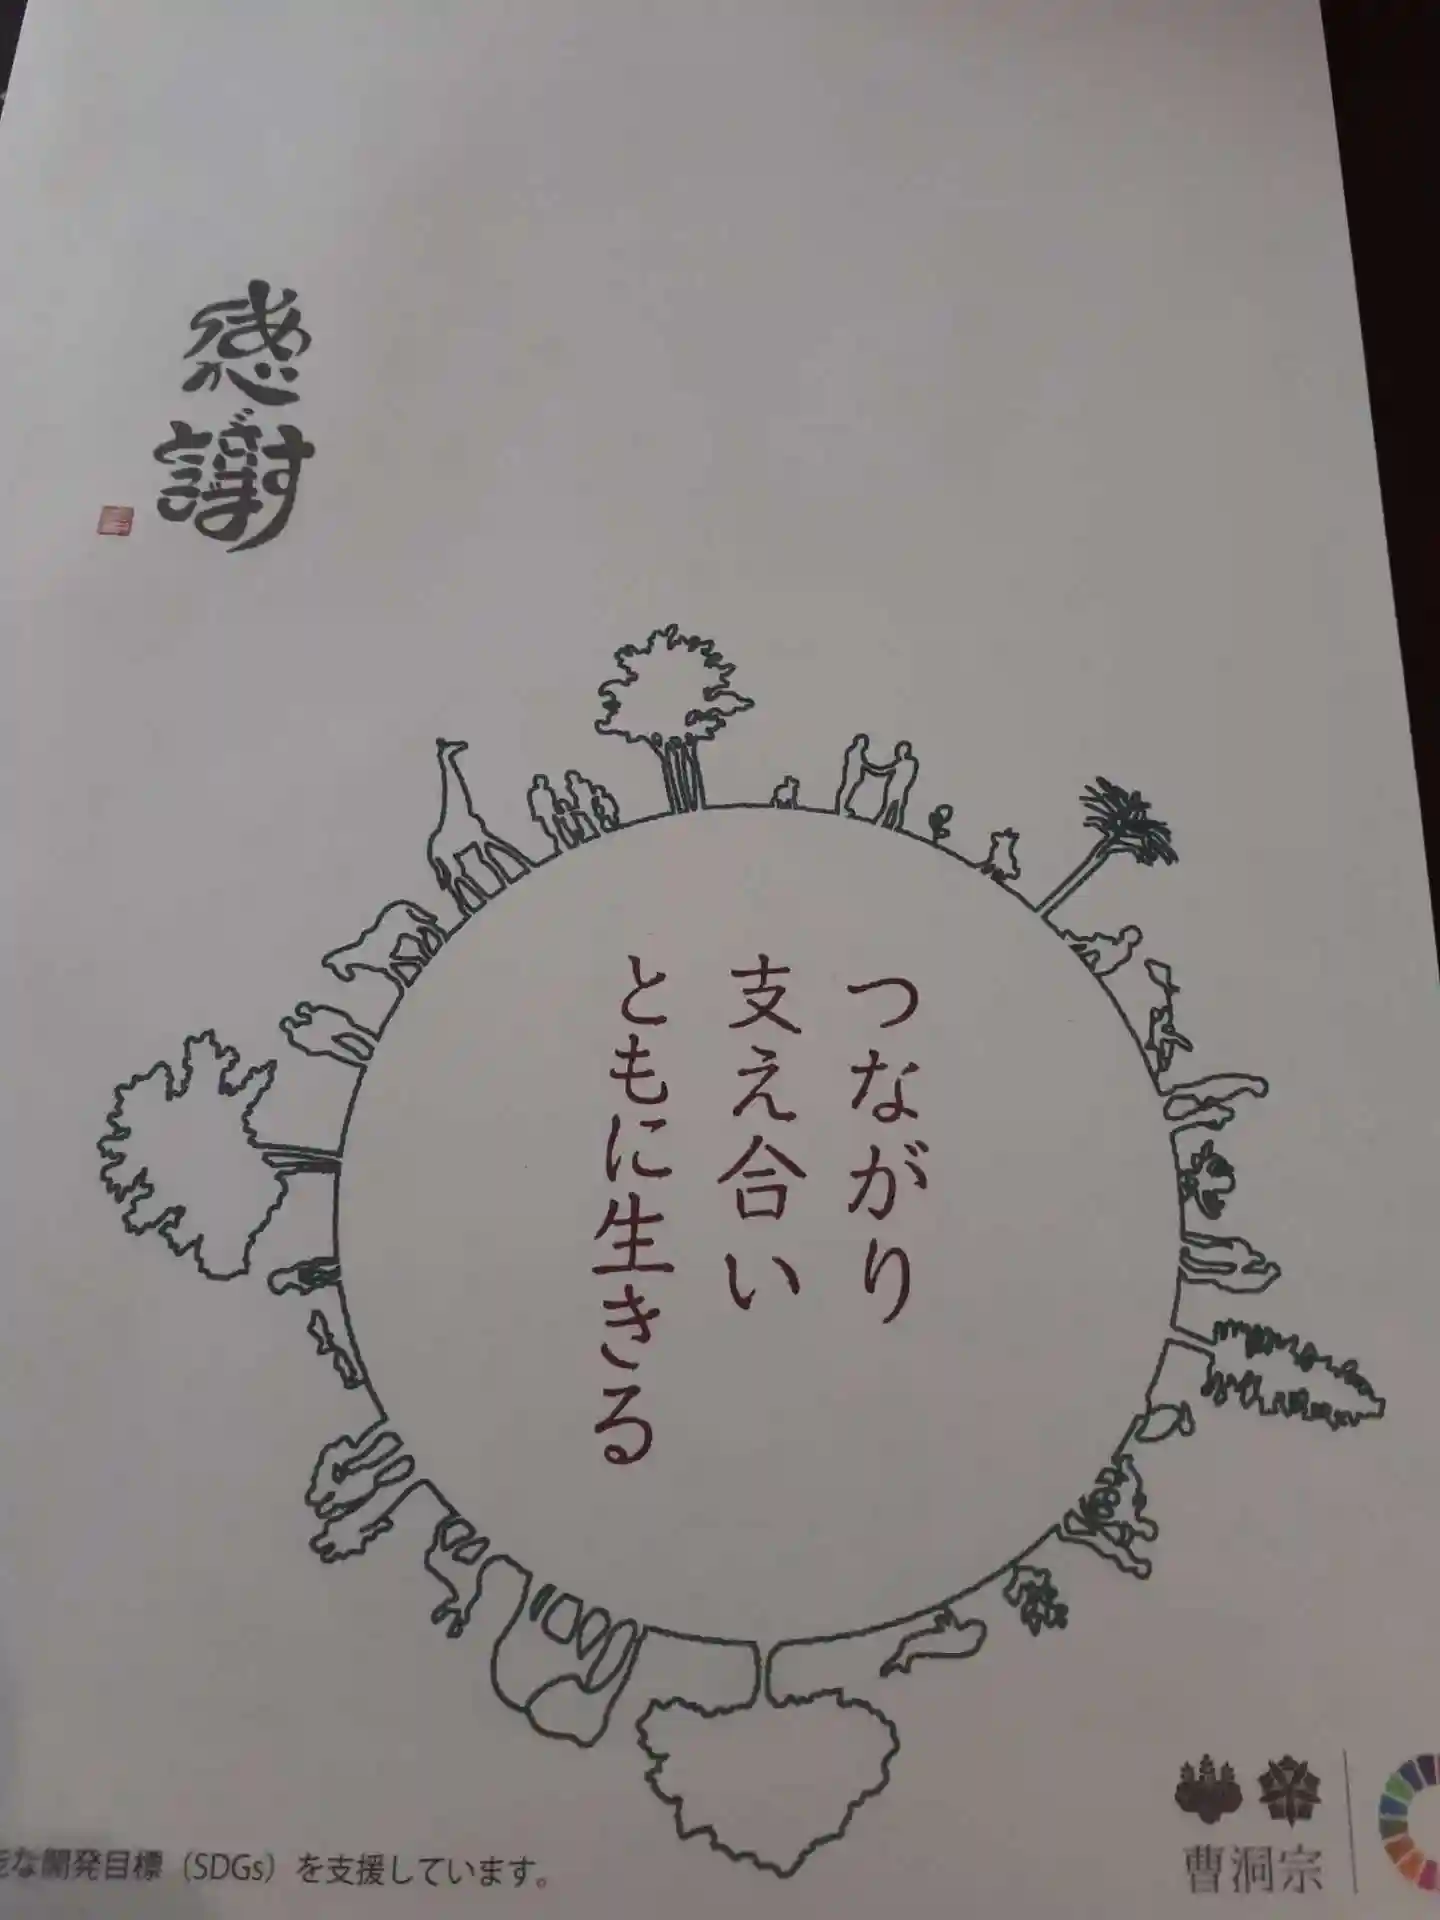 感謝
つながり
支え合い
ともに生きる
な開発目標（SDGs）を支援しています。
曹洞宗